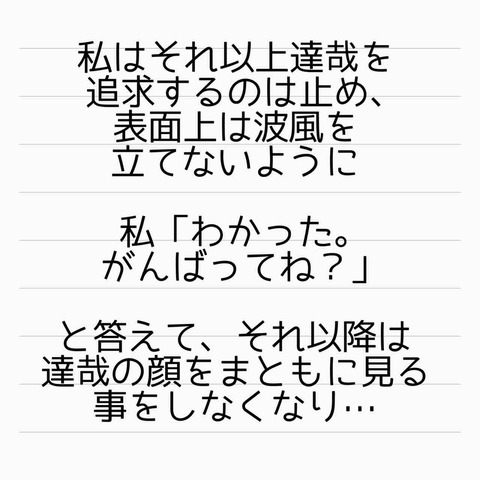 私はそれ以上達哉を
追求するのは止め、
表面上は波風を
立てないように
私「わかった。
がんばってね？」
と答えて、それ以降は
達哉の顔をまともに見る
事をしなくなり…